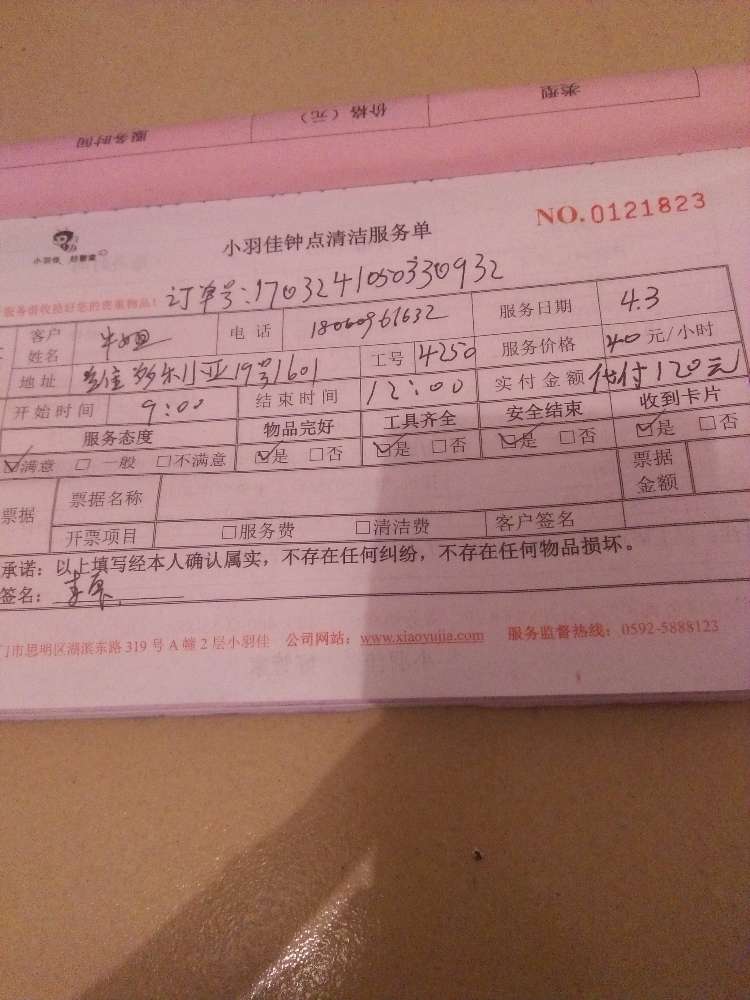 类型
价格（元）
服务时间
NO. 0121823
小羽佳
小羽佳钟点清洁服务单
服务前收拾好您的贵重物品！ 订单号:1703241050330932
客户姓名 电话 18060961632 服务日期 4.3
地址 多利亚19号1601 工号 4250 服务价格 40 元/小时
开始时间 9:00 结束时间 12:00 实付金额 代付120元
服务态度 物品完好 工具齐全 安全结束 收到卡片
☑满意 □ 一般 □不满意 ☑是 □否 ☑是 □否 ☑是 □否 ☑是 □否
票据 票据名称 票据金额
开票项目 □服务费 □清洁费 客户签名
承诺：以上填写经本人确认属实，不存在任何纠纷，不存在任何物品损坏。
签名：
门市思明区湖滨东路 319 号 A 幢 2 层小羽佳 公司网站：www.xiaoyujia.com 服务监督热线：0592-5888123